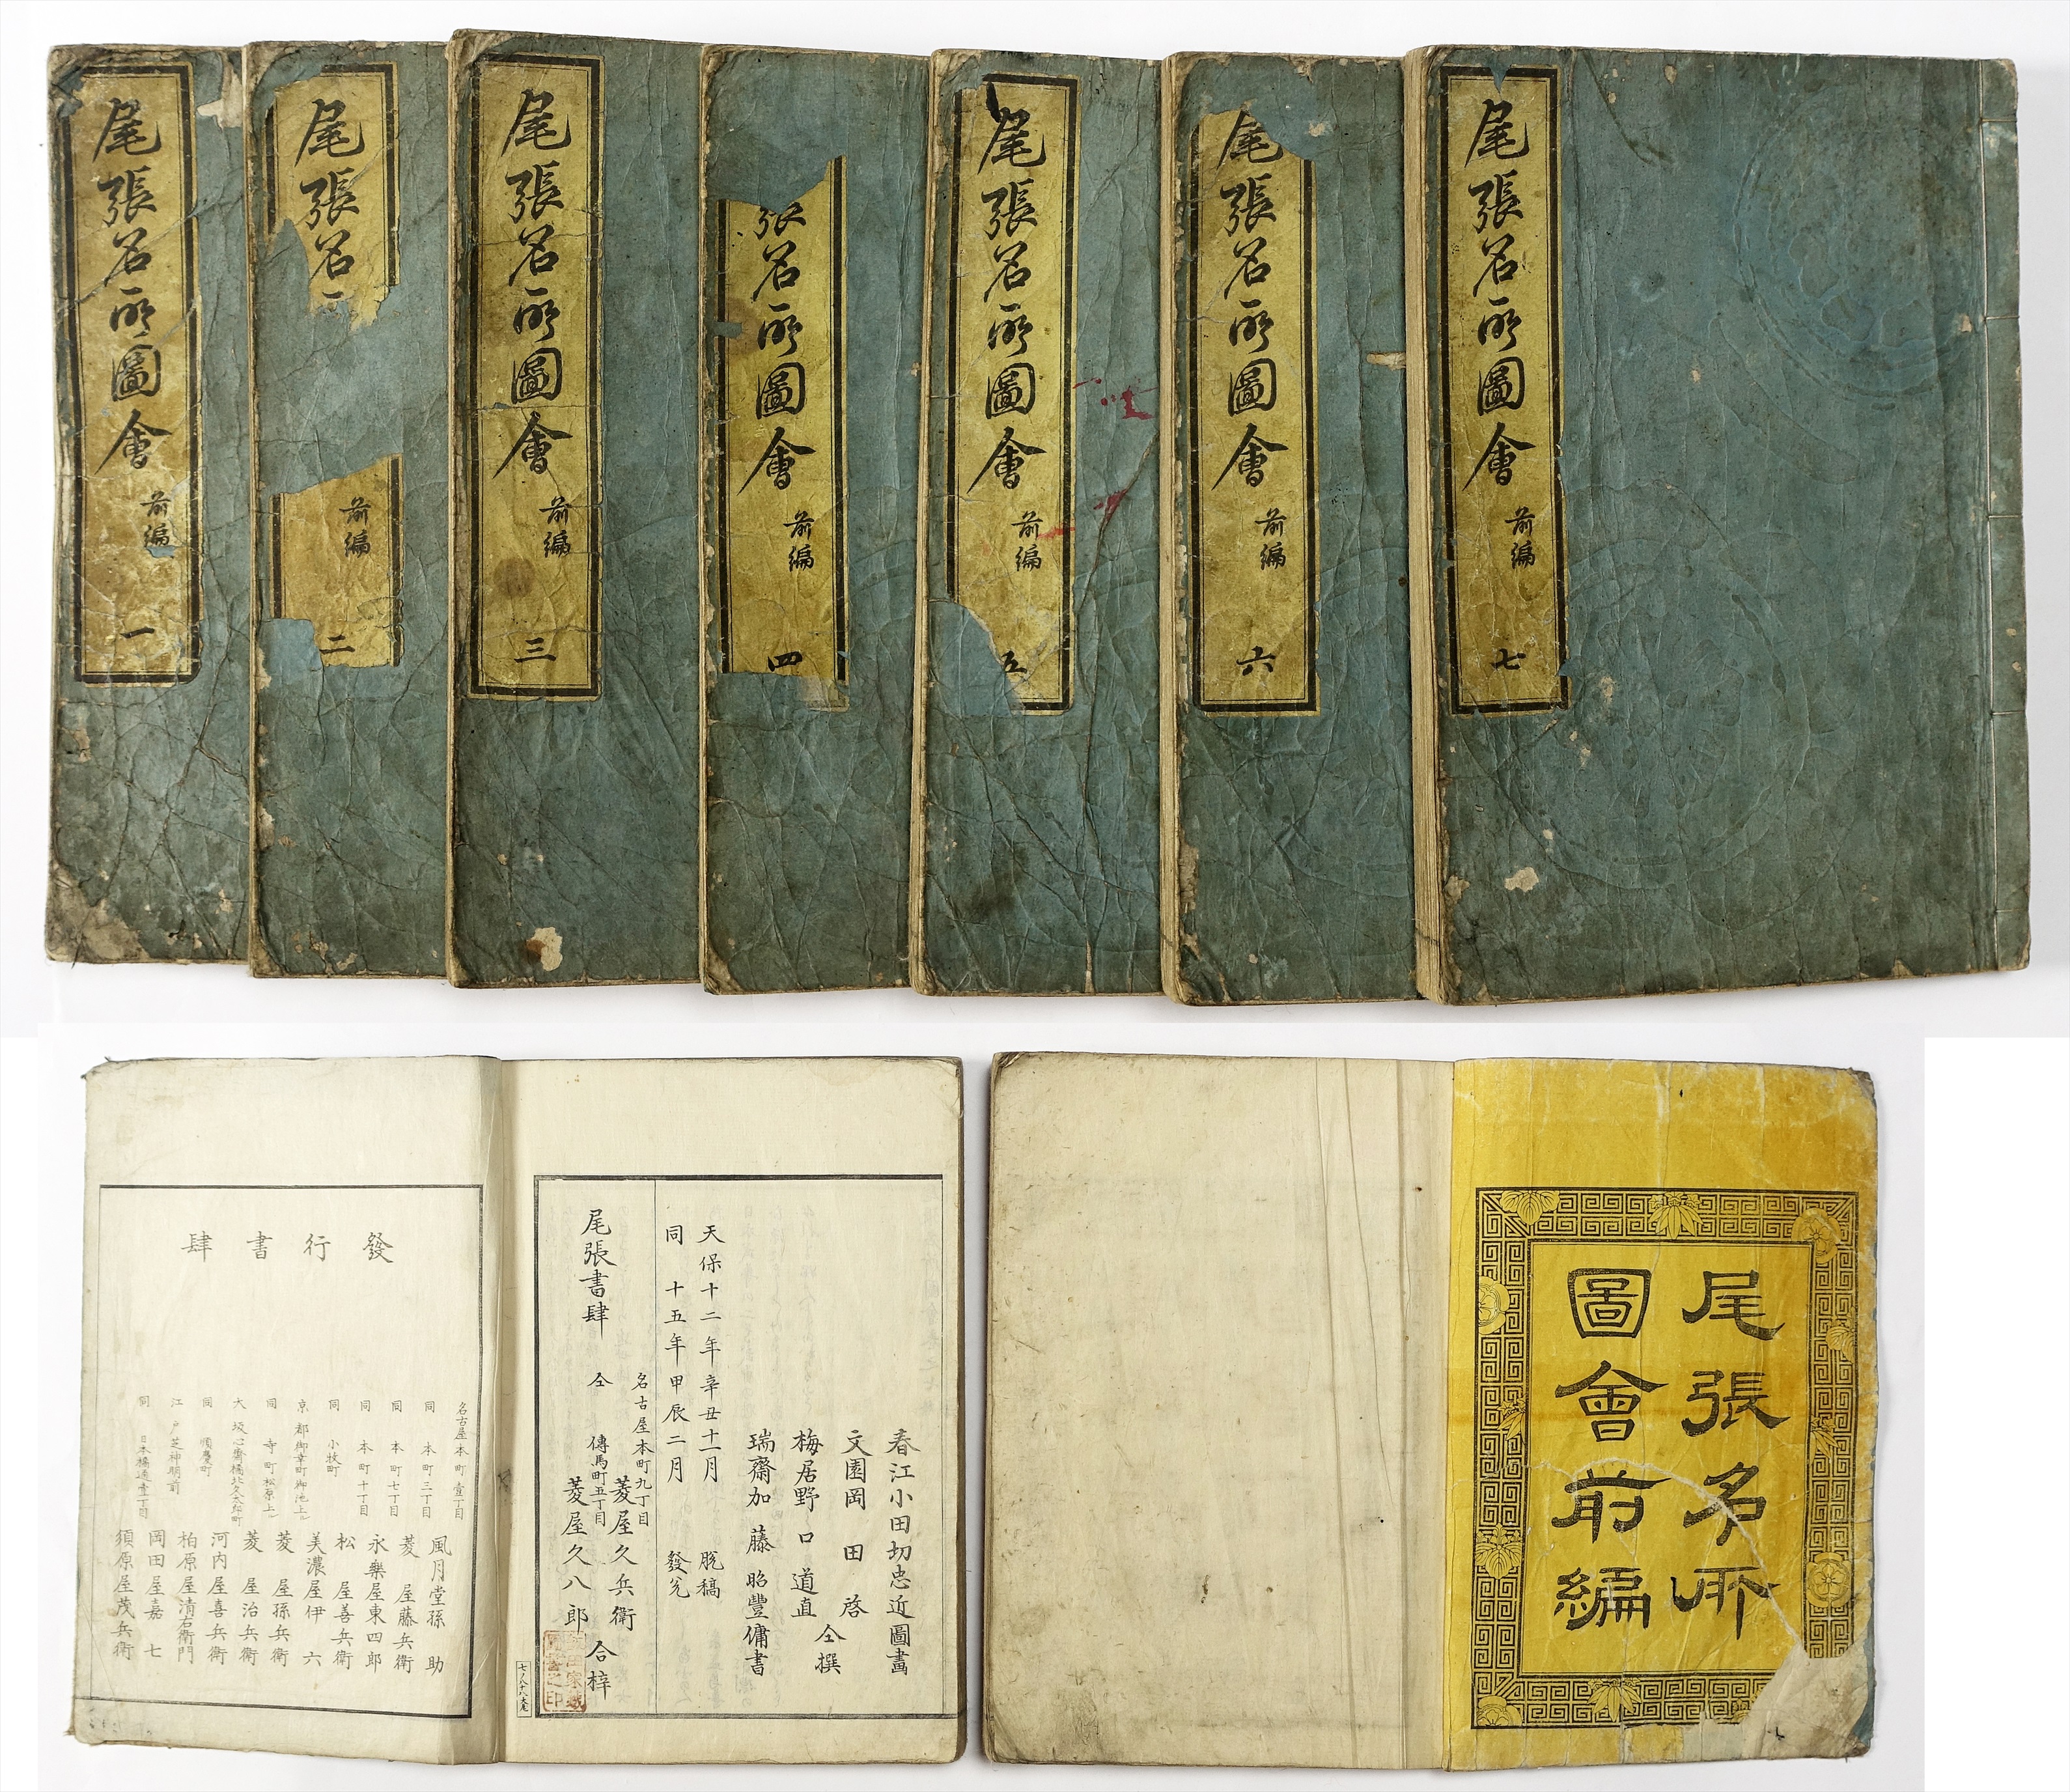 尾張名所圖會 前編 一
尾張名 前編 二
尾張名所圖會 前編 三
張名所圖會 前編 四
尾張名所圖會 前編 五
尾張名所圖會 前編 六
尾張名所圖會 前編 七
尾張名所
圖會前編
春江小田切忠近圖畫
文園岡田啓
梅居野口道直 仝撰
瑞齋加藤昭豐傭書
天保十二年辛丑十一月 脱稿
同 十五年甲辰二月 發兌
名古屋本町九丁目 菱屋久兵衛
尾張書肆 仝 傳馬町五丁目 菱屋久八郎 合梓
發行書肆
名古屋本町壹丁目 風月堂孫助
同 本町三丁目 菱屋藤兵衛
同 本町七丁目 永樂屋東四郎
同 本町十丁目 松屋善兵衛
同 小牧町 美濃屋伊六
京都御幸町御池上ル 菱屋孫兵衛
同 寺町松原上ル 菱屋治兵衛
大坂心齋橋北久太郎町 河内屋喜兵衛
同 順慶町 柏原屋清右衛門
江戸芝神明前 岡田屋嘉七
同 日本橋通壹丁目 須原屋茂兵衛